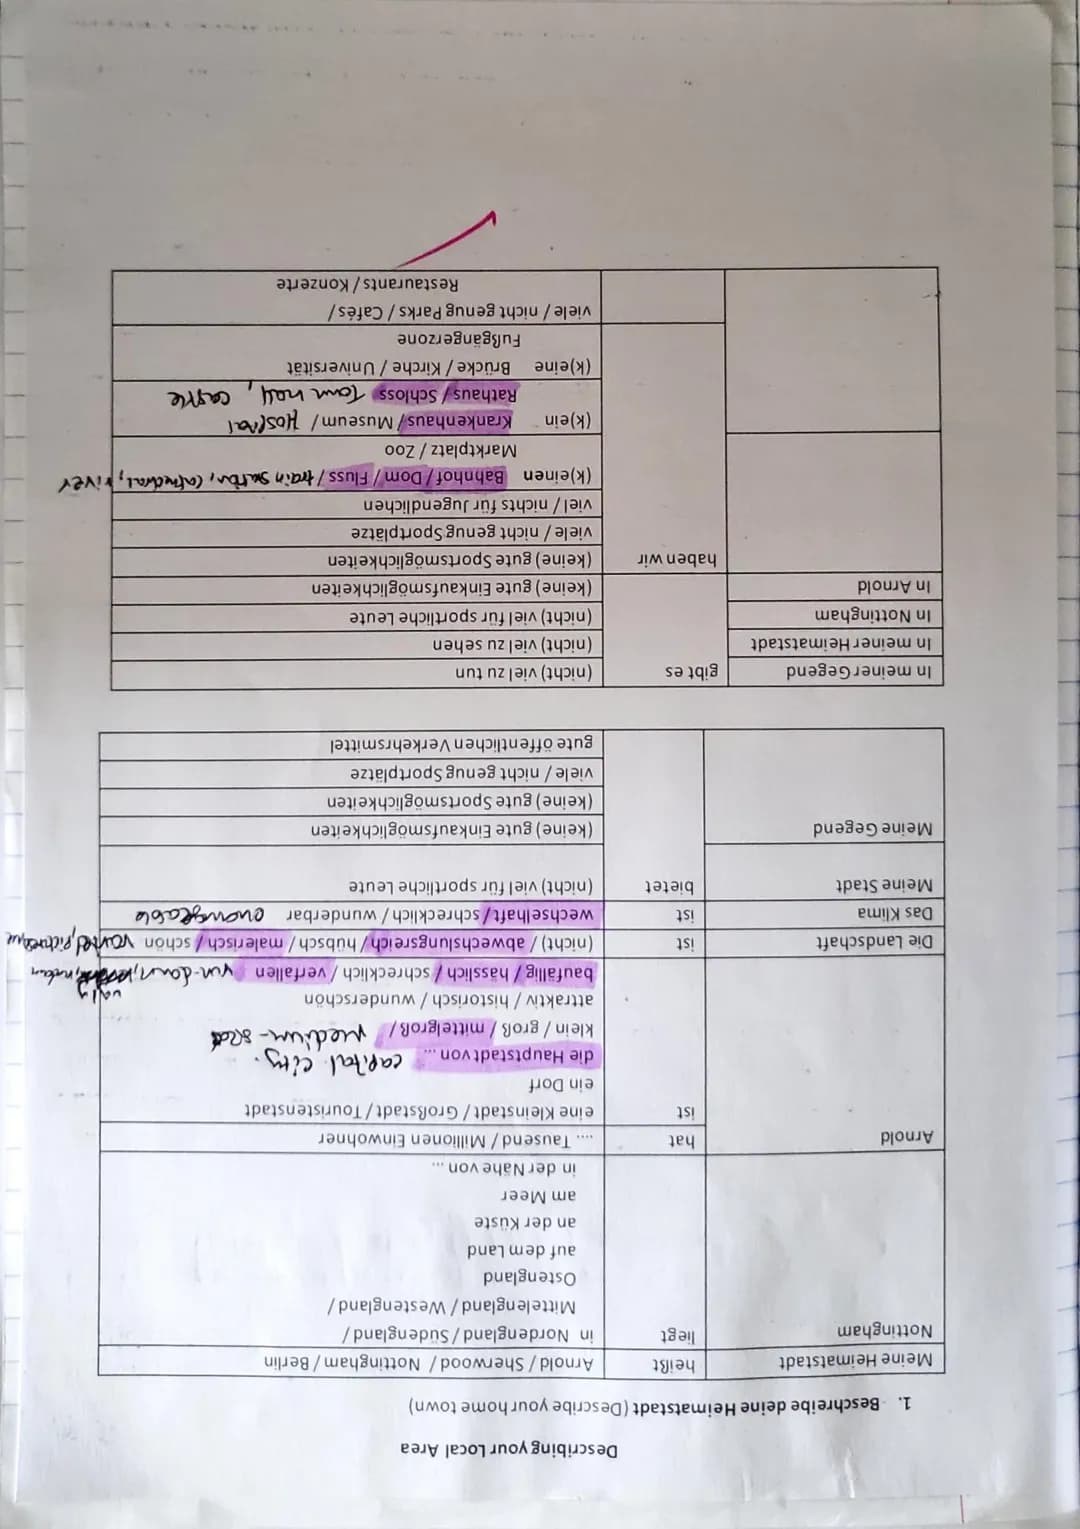 Describing your Local Area
1. Beschreibe deine Heimatstadt (Describe your home town)
Meine Heimatstadt heißt Arnold / Sherwood / Nottingham / Berlin
Nottingham liegt in Nordengland / Südengland /
Mittelengland / Westengland /
Ostengland
auf dem Land
an der Küste
am Meer
in der Nähe von ...
Arnold hat .... Tausend / Millionen Einwohner
ist eine Kleinstadt / Großstadt / Touristenstadt
ein Dorf
die Hauptstadt von ... capital city.
klein / groß / mittelgroß / medium-sized
attraktiv / historisch / wunderschön
baufällig / hässlich / schrecklich / verfallen run-down, ugly
Die Landschaft ist (nicht) / abwechslungsreich / hübsch / malerisch / schön varied, picturesque
Das Klima ist wechselhaft / schrecklich / wunderbar
Meine Stadt bietet (nicht) viel für sportliche Leute
Meine Gegend (keine) gute Einkaufsmöglichkeiten
(keine) gute Sportsmöglichkeiten
viele / nicht genug Sportplätze
gute öffentlichen Verkehrsmittel
In meiner Gegend gibt es (nicht) viel zu tun
In meiner Heimatstadt (nicht) viel zu sehen
In Nottingham (nicht) viel für sportliche Leute
In Arnold (keine) gute Einkaufsmöglichkeiten
haben wir (keine) gute Sportsmöglichkeiten
viele / nicht genug Sportplätze
viel / nichts für Jugendlichen
(k)einen Bahnhof / Dom / Fluss / train station, cathedral, river
Marktplatz / Zoo
(k)ein Krankenhaus / Museum / Hospital
Rathaus / Schloss Town hall, castle
(k)eine Brücke / Kirche / Universität
Fußgängerzone
viele / nicht genug Parks / Cafés /
Restaurants / Konzerte